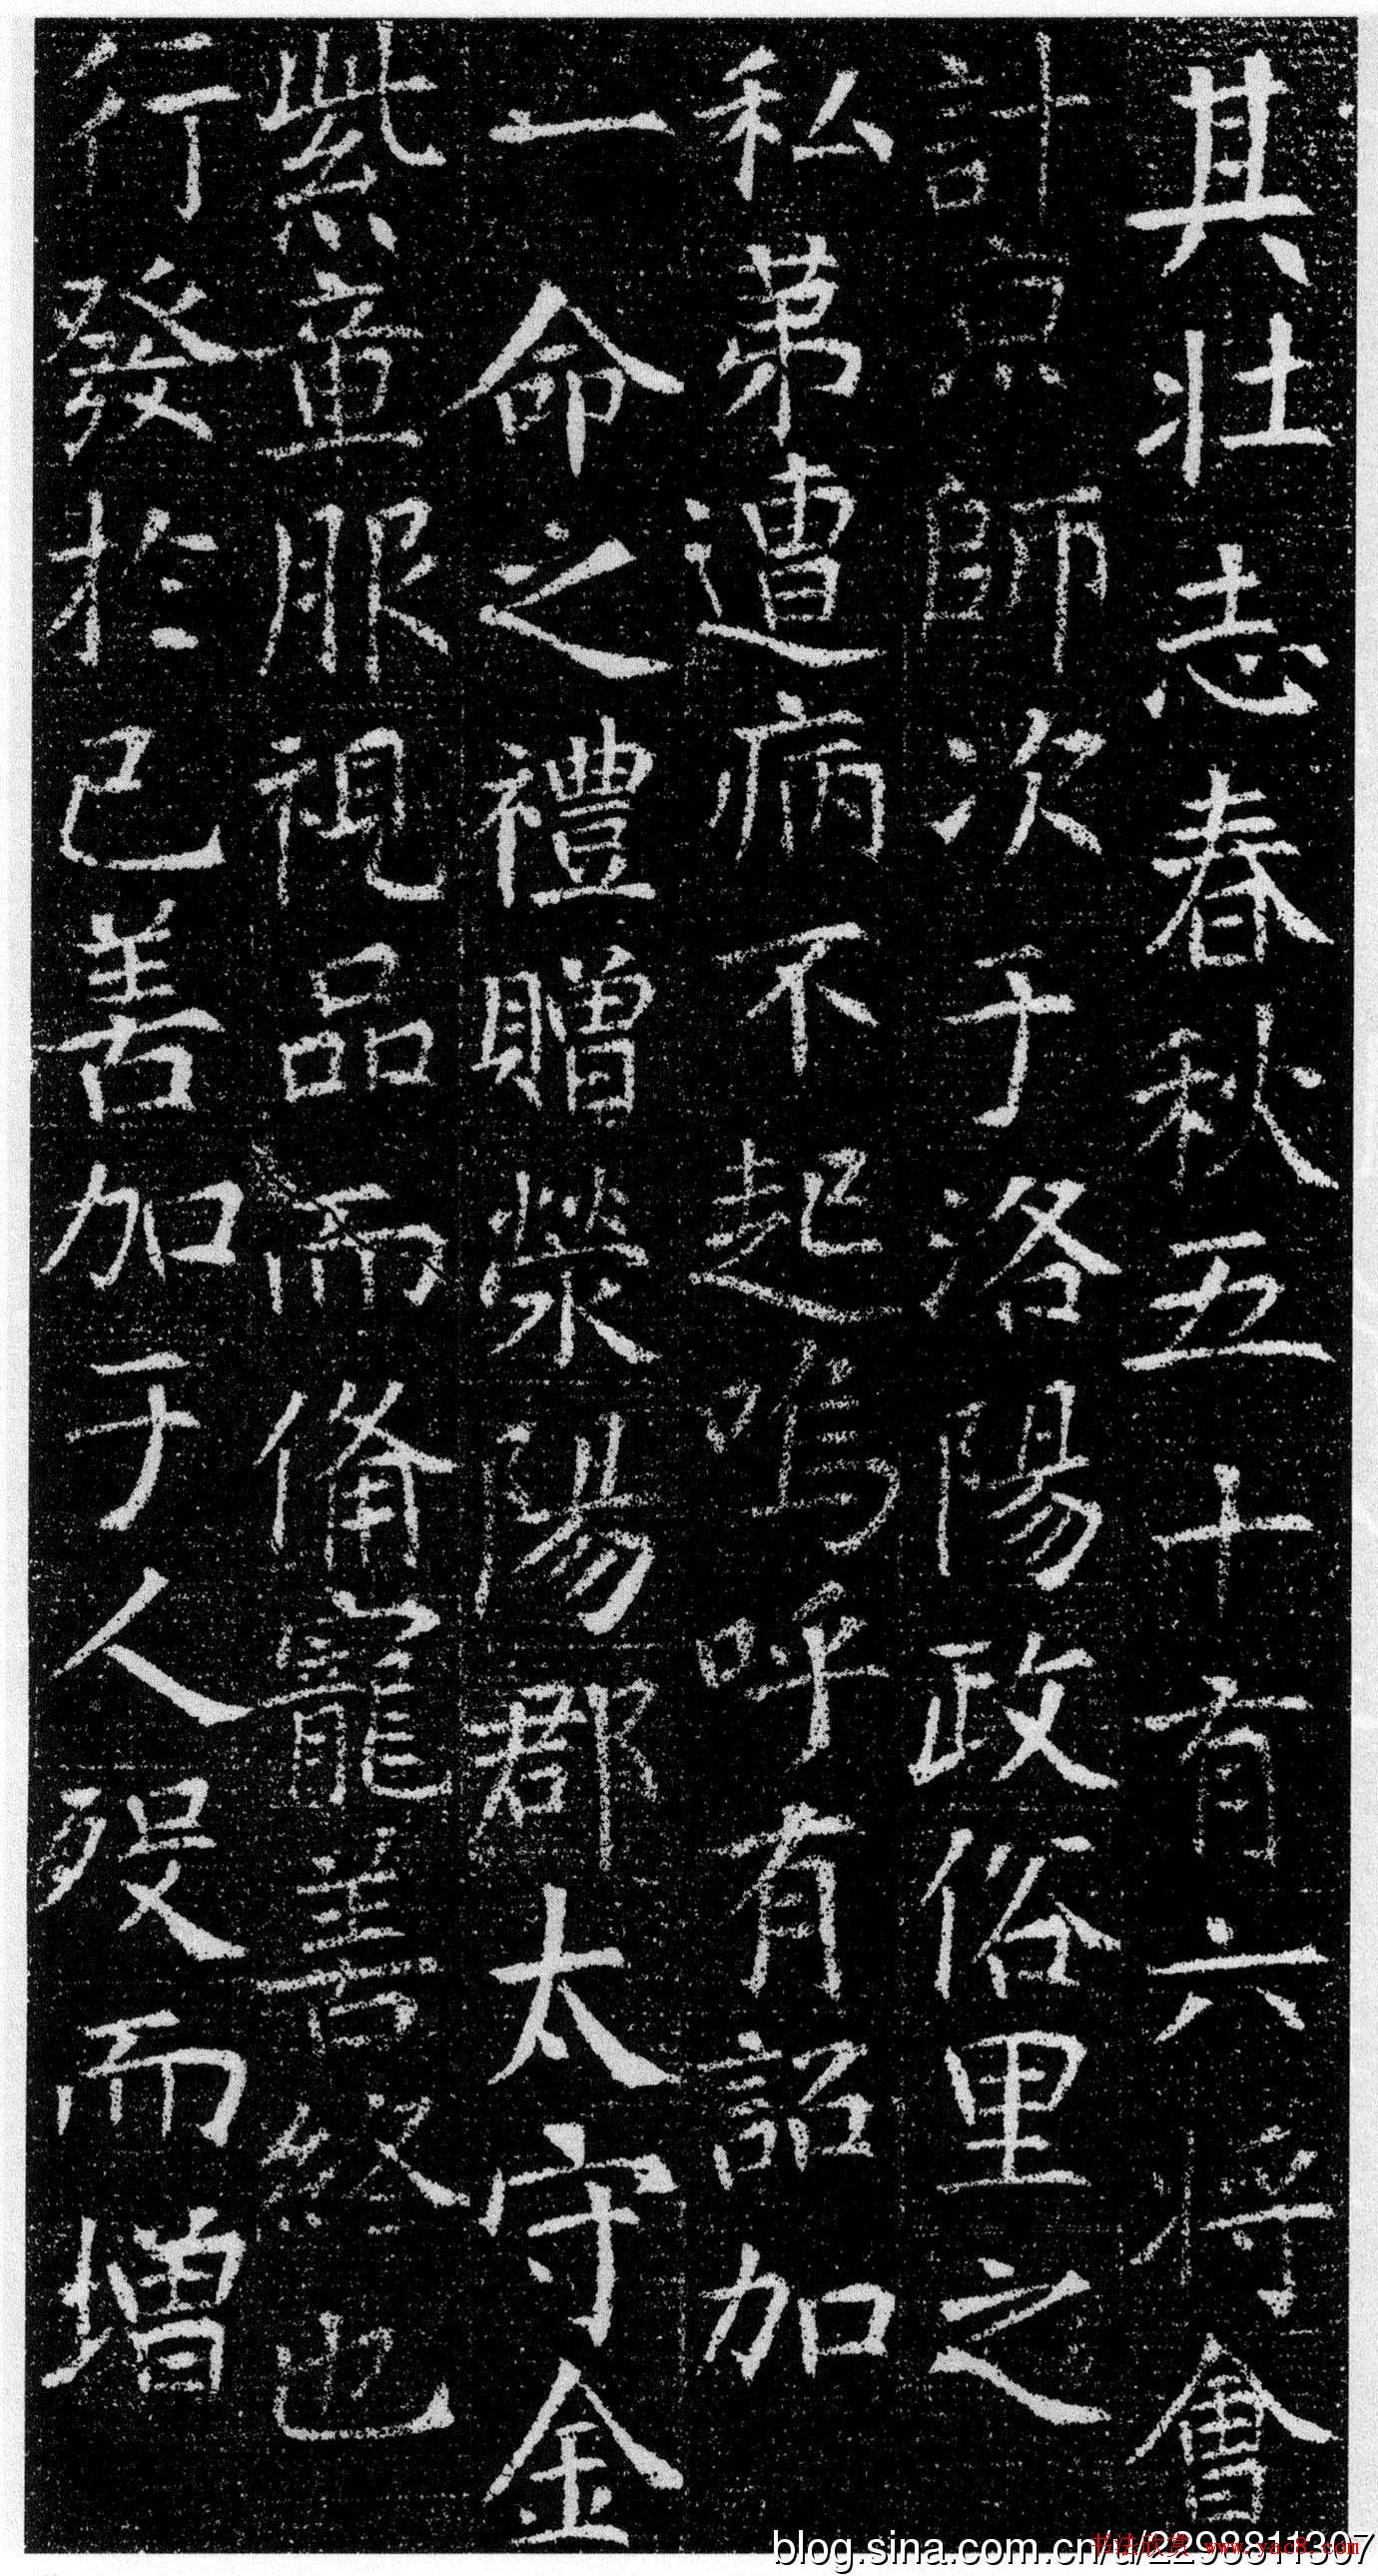 其壯志春秋五十有六將會
計京師次于洛陽政俗里之
私苐遭病不起嗚呼有詔加
一命之禮贈滎陽郡太守金
紫章服視品而俻寵善終也
行發於己善加于人歿而增
blog.sina.com.cn/u/2298811307
书法欣赏 www.yac8.com